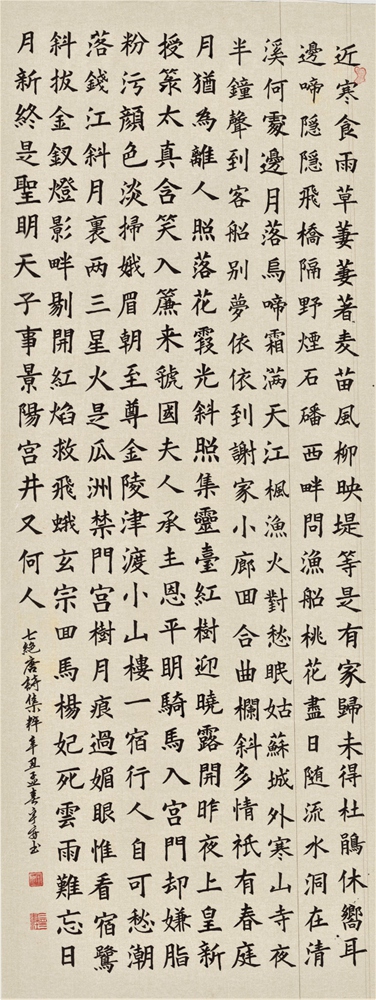 近寒食雨草萋萋著麦苗風柳映堤等是有家歸未得杜鵑休嚮耳
邊啼隱隱飛橋隔野煙石磻西畔問漁船桃花盡日随流水洞在清
溪何處邊月落烏啼霜满天江楓漁火對愁眠姑蘇城外寒山寺夜
半鐘聲到客船别夢依依到謝家小廊回合曲欄斜多情祇有春庭
月猶為離人照落花霞光斜照集靈臺紅樹迎曉露開昨夜上皇新
授箓太真含笑入簾来虢國夫人承主恩平明騎馬入宫門却嫌脂
粉污顏色淡掃娥眉朝至尊金陵津渡小山樓一宿行人自可愁潮
落錢江斜月裏两三星火是瓜洲禁門宫樹月痕過媚眼惟看宿鷺
斜拔金釵燈影畔剔開紅焰救飛蛾玄宗回馬楊妃死雲雨難忘日
月新終是聖明天子事景陽宫井又何人
七絶唐詩集粹辛丑孟春书